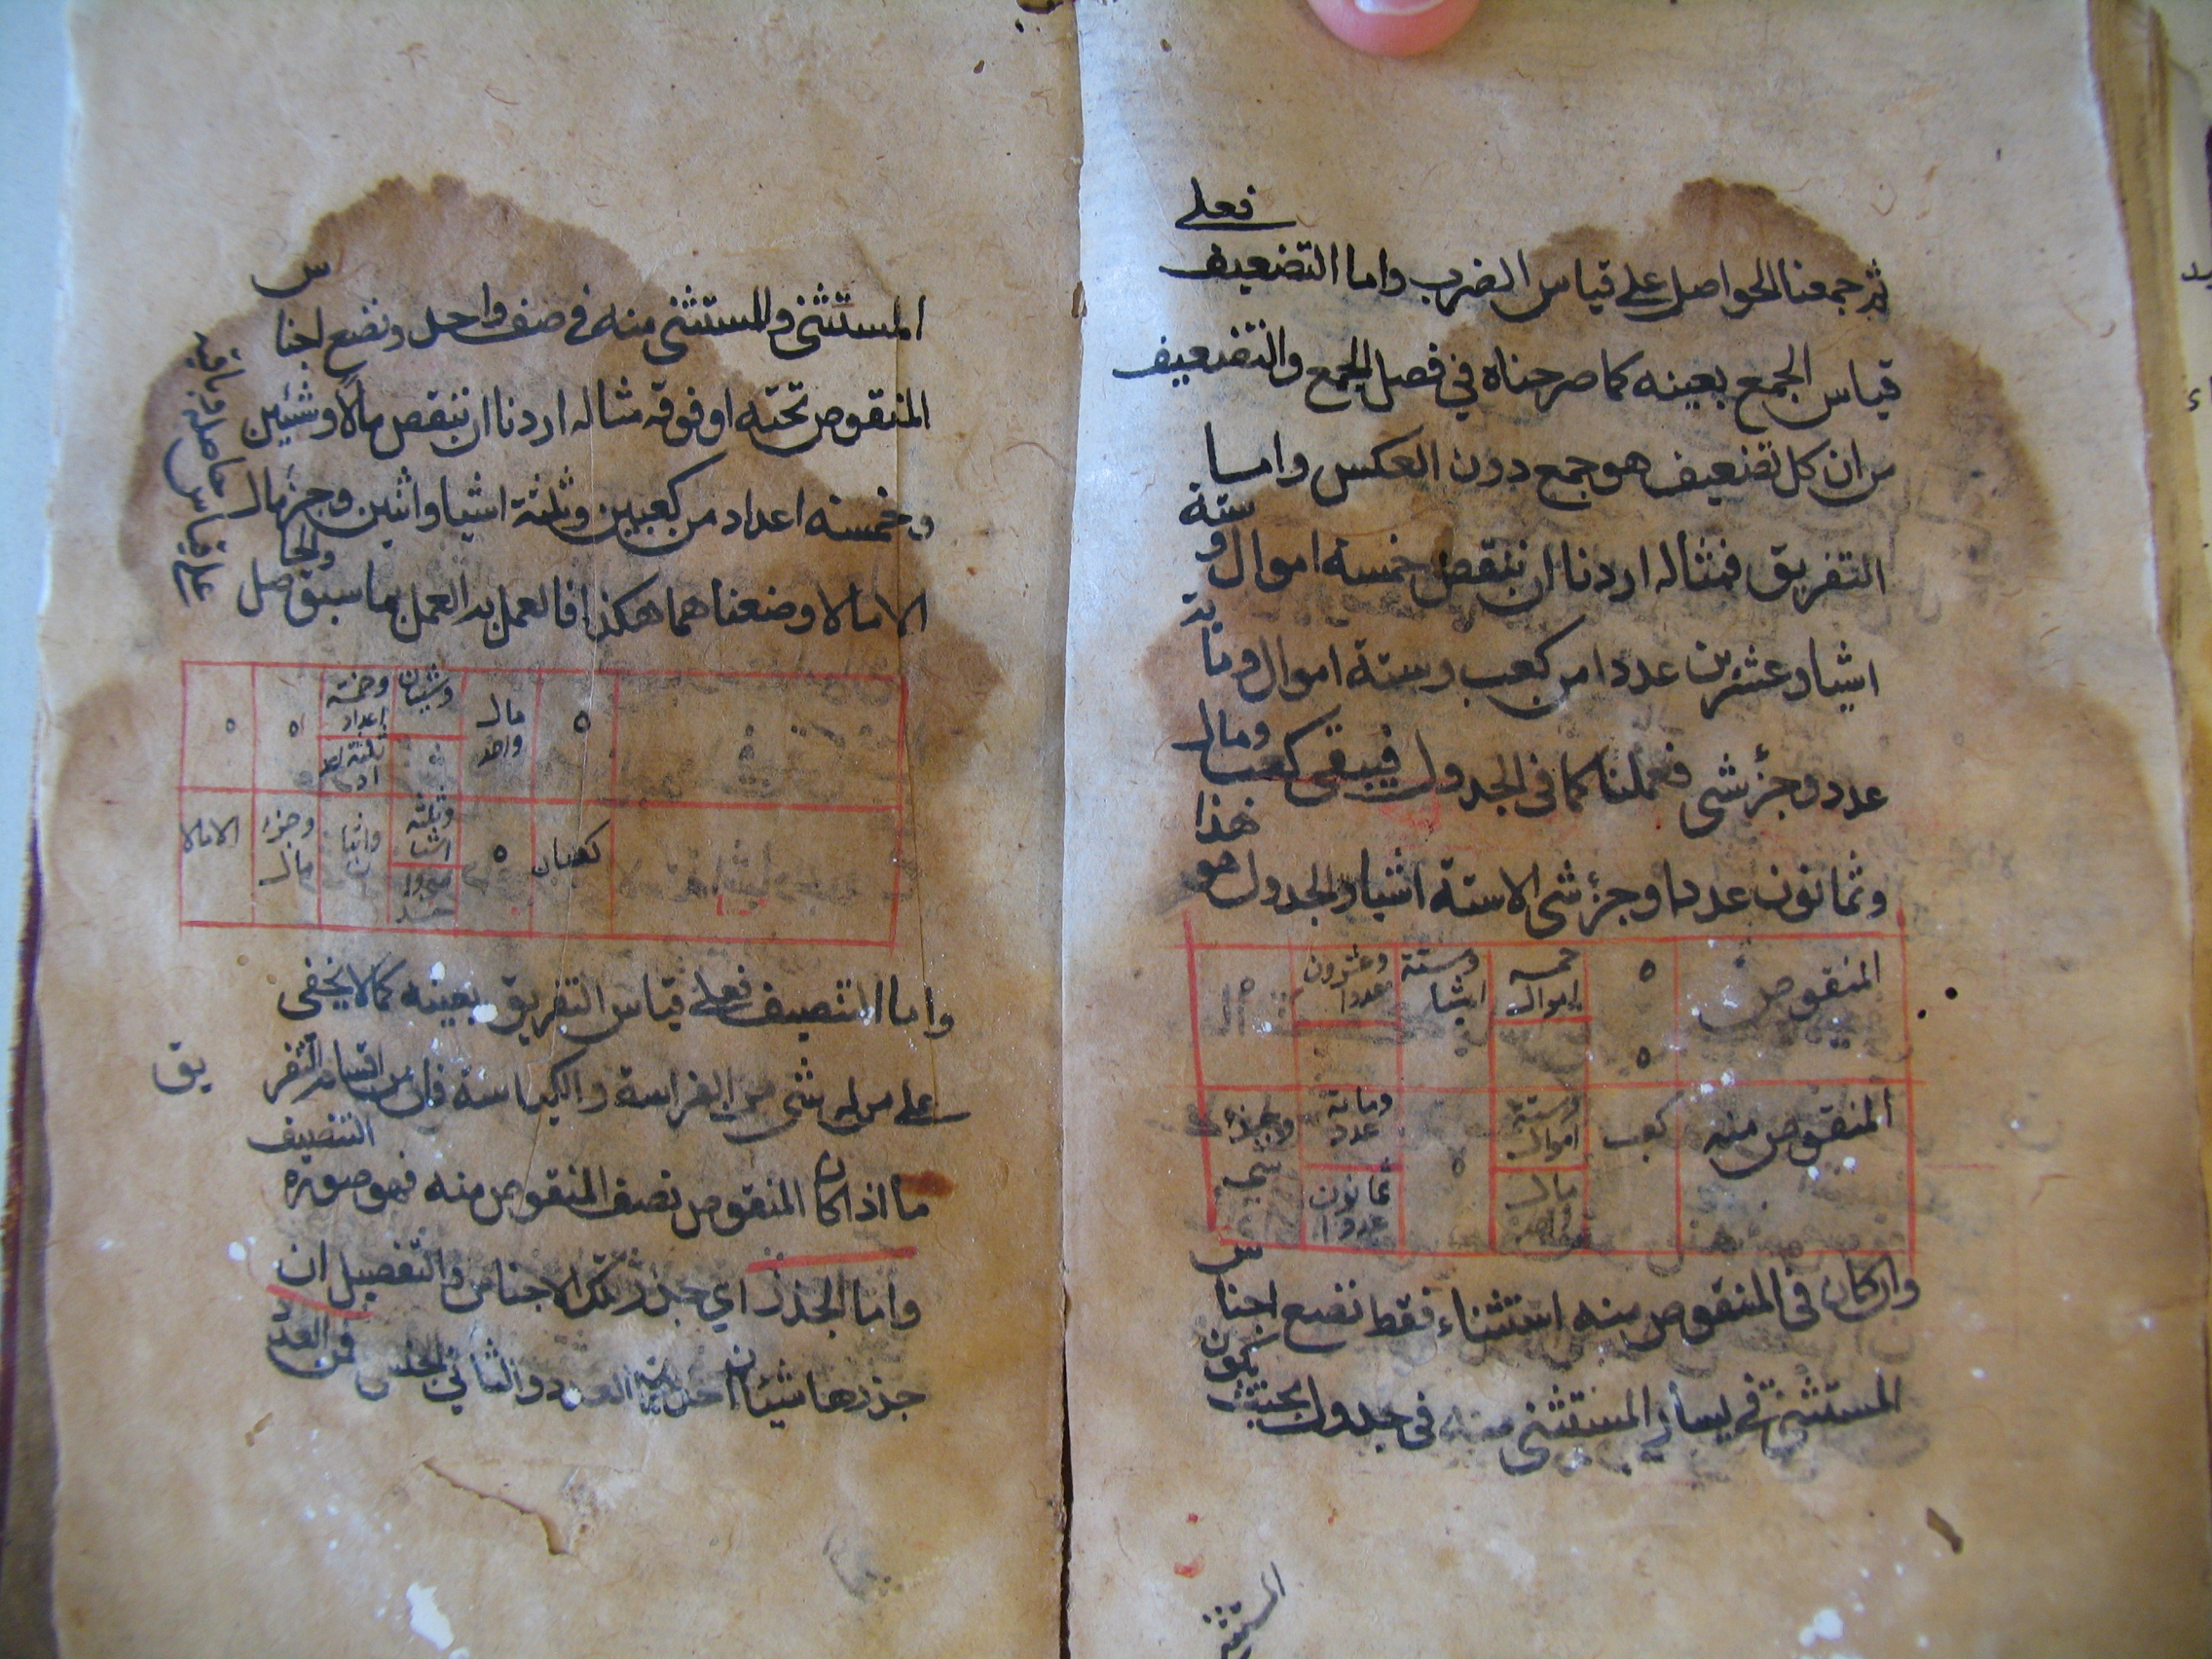 ثم جمعنا الحواصل على قياس الضرب واما التضعيف فعلى
قياس الجمع بعينه كما صرحناه في فصل الجمع والتضعيف
من ان كل تضعيف هو جمع دون العكس واما
التفريق فمثاله اردنا ان ننقص خمسة اموال وستة
اشيا وعشرين عددا من كعب وستة اموال ومائة
عدد وجزء شى فعملنا كما فى الجدول فيبقى كعب ومال
وثمانون عددا وجزء شى الا ستة اشيا والجدول هو هذا
المنقوص
٥
خمسه اموال
وستة اشيا
وعشرون عددا
٥
المنقوص منه
كعب
وستة اموال
٥
ومائة عدد
وجزء شى
مال واحد
ثمانون عددا
وان كان فى المنقوص منه استثناء فقط نضع اجناس
المستثنى في يسار المستثنى منه فى جدول بحيث يكون
المستثنى
المستثنى والمستثنى منه فى صف واحد ونضع اجناس
المنقوص تحته او فوقه مثاله اردنا ان ننقص مالا وشيئين
وخمسة اعداد من كعبين وثلثة اشيا واثنين وجزء مال
الا مالا وضعناهما هكذا فالعمل بد العمل بما سبق والحاصل
على قياس حاصله وباقيه
٥
مال واحد
وشيئان
وخمسة اعداد
٥
٥
ثلثة اعداد
كعبان
٥
وثلثه اشيا
واثنان
وجزء مال
الا مالا
واما التنصيف فعلى قياس التفريق بعينه كما لا يخفى
على من له شى من الفراسة والكياسة فان من اقسام التفريق
ما اذا كان المنقوص نصف المنقوص منه فهو صورة التنصيف
واما الجذر اي جذر تلك الاجناس والتفصيل ان
جذرها شيئان العدد والثاني الجنس فمن العدد